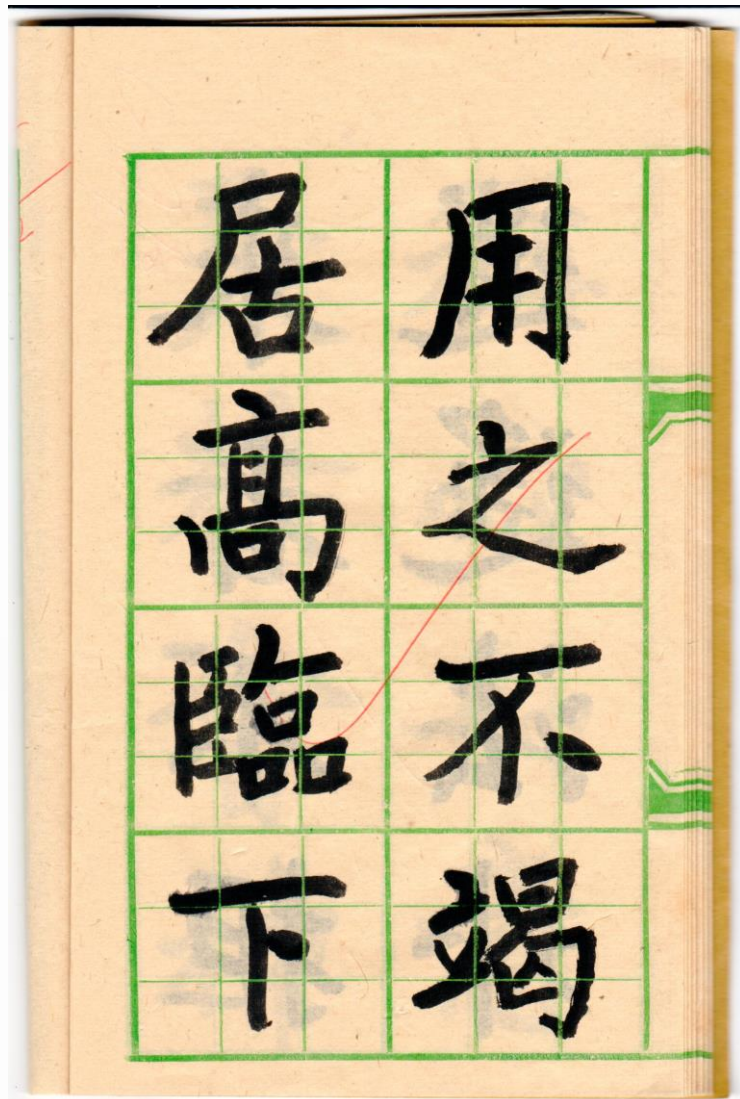 用之不竭
居高臨下